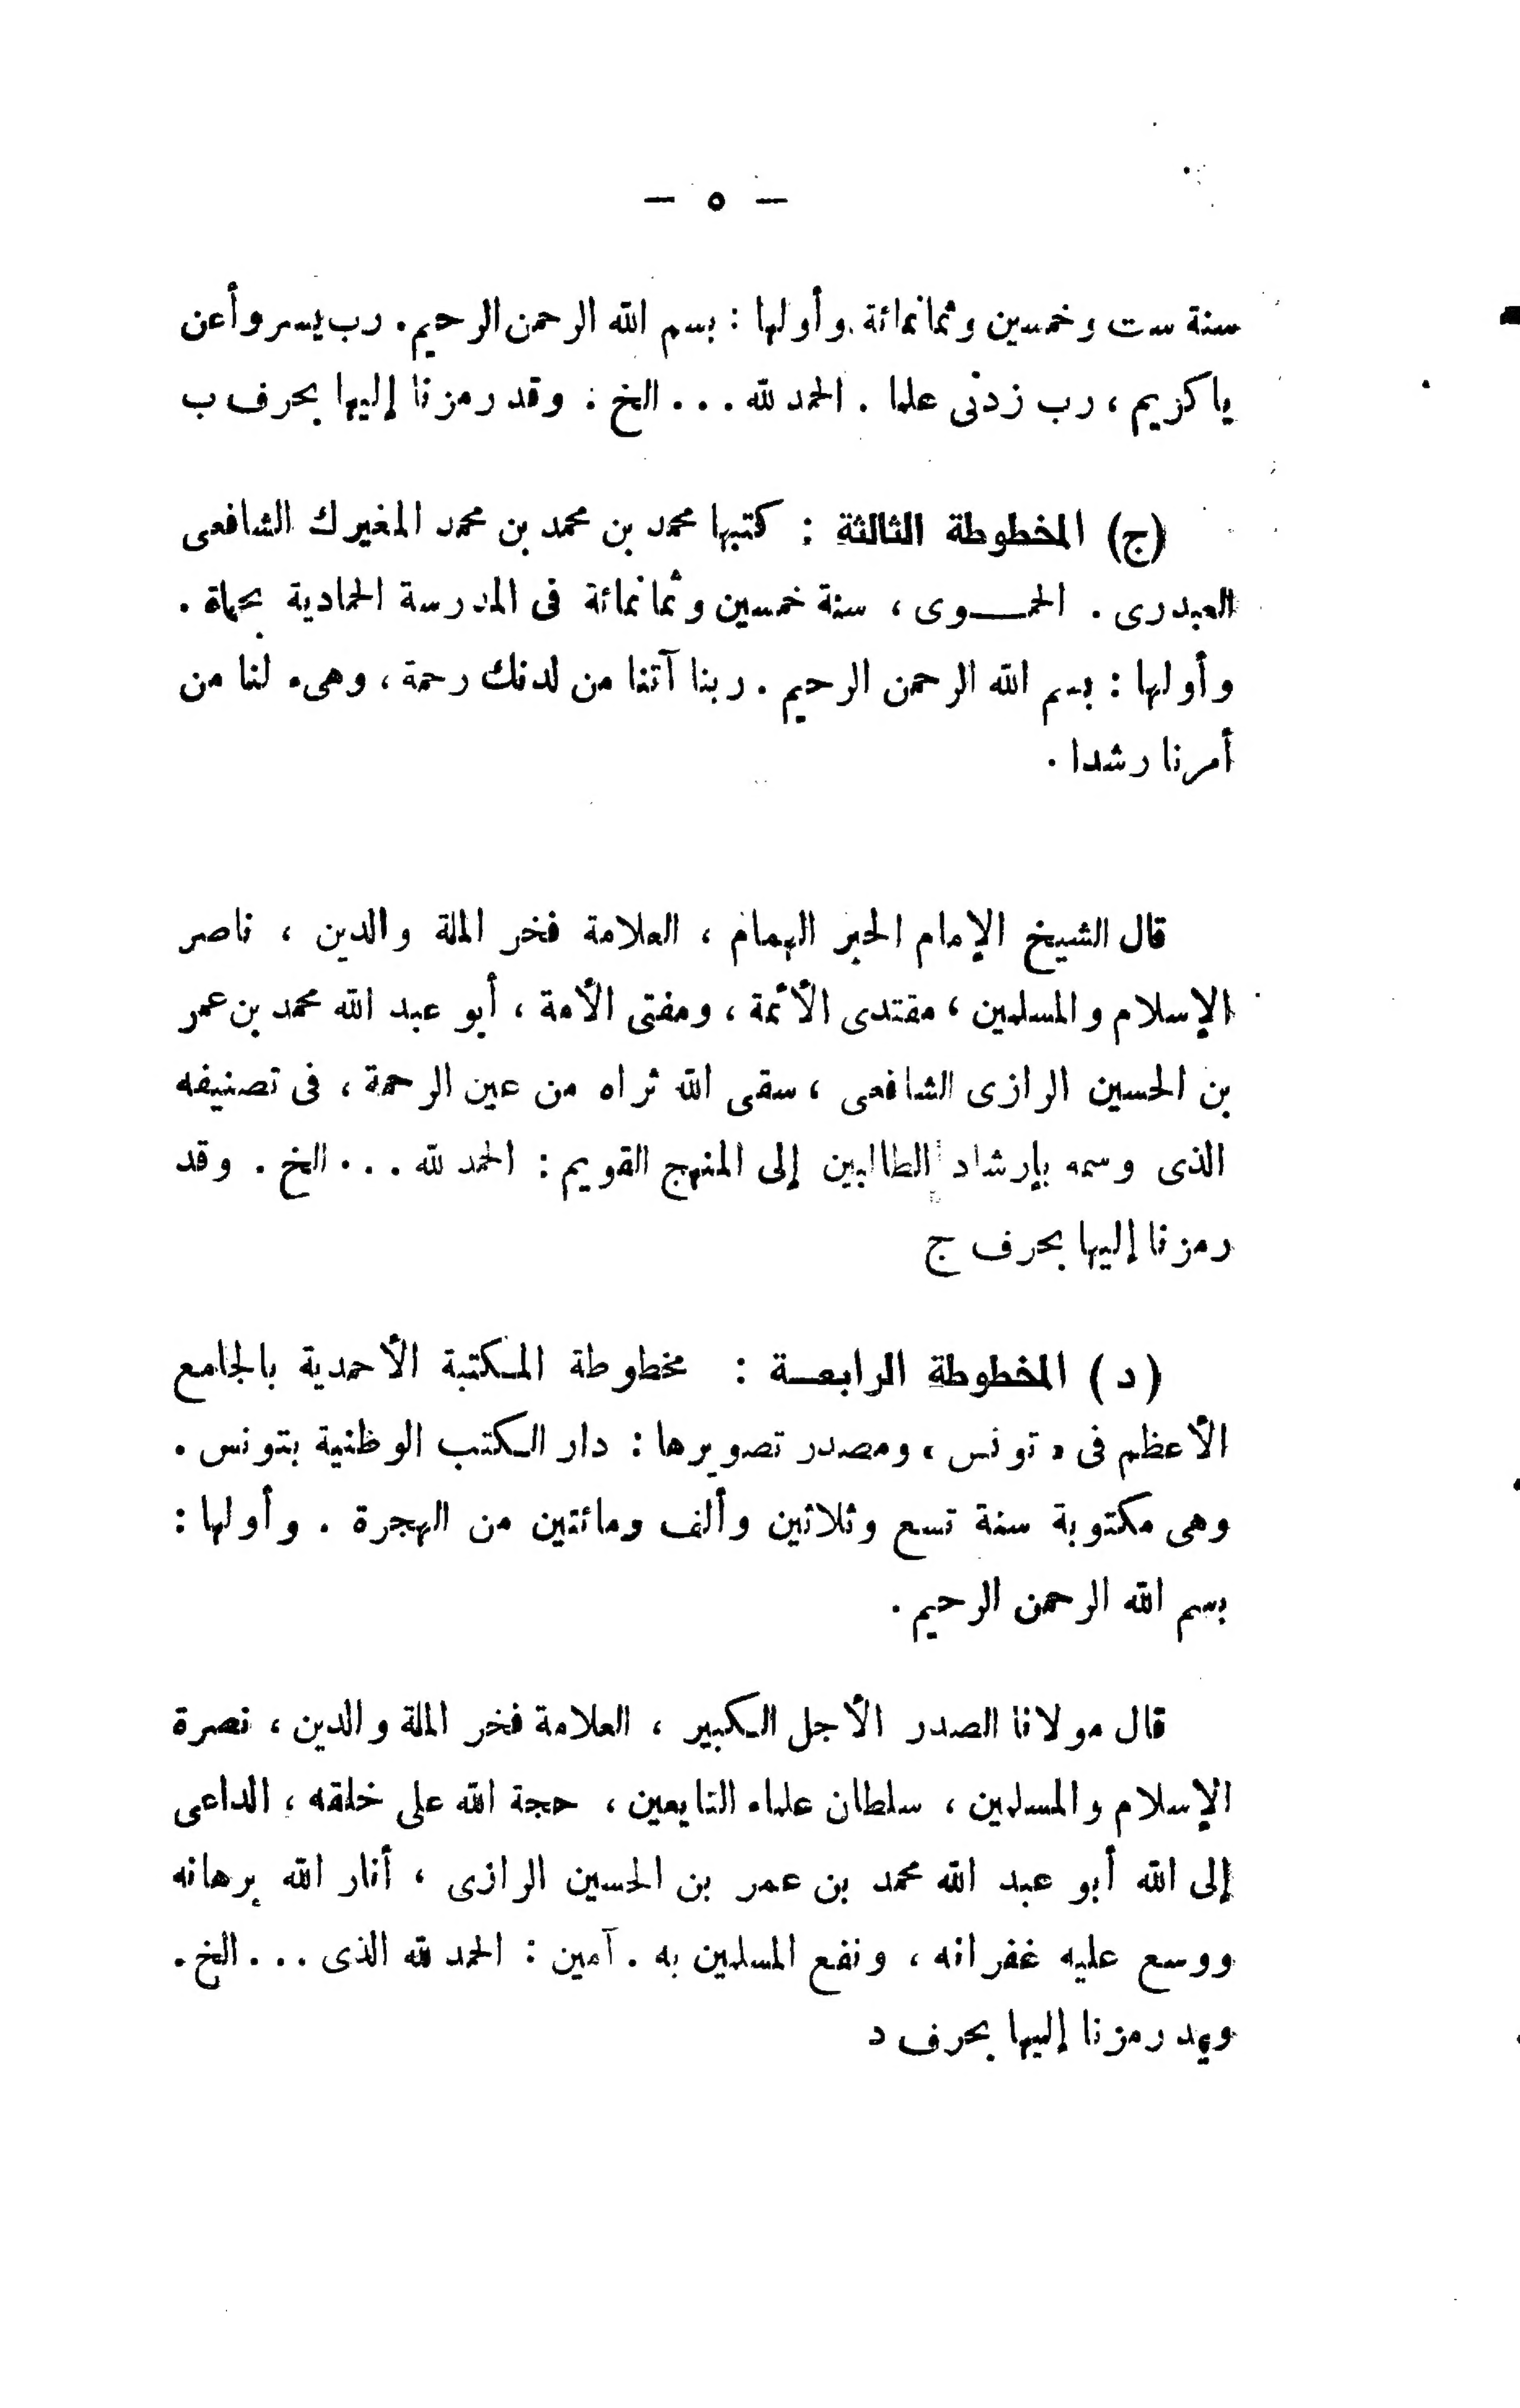 — ٥ —
سنة ست وخمسين وثمانمائة. وأولها : بسم الله الرحمن الرحيم. رب يسر وأعن
يا كريم ، رب زدنى علما . الحمد لله ... الخ . وقد رمزنا إليها بحرف ب
(ج) المخطوطة الثالثة : كتبها محمد بن محمد بن محمد المغيرك الشافعى
العبدرى . الحمـــوى ، سنة خمسين وثمانمائة فى المدرسة الحمادية بحماة .
وأولها : بسم الله الرحمن الرحيم . ربنا آتنا من لدنك رحمة ، وهىء لنا من
أمرنا رشدا .
قال الشيخ الإمام الحبر الهمام ، العلامة فخر الملة والدين ، ناصر
الإسلام والمسلمين ، مقتدى الأئمة ، ومفتى الأمة ، أبو عبد الله محمد بن عمر
بن الحسين الرازى الشافعى ، سقى الله ثراه من عين الرحمة ، فى تصنيفه
الذى وسمه بإرشاد الطالبين إلى المنهج القويم : الحمد لله ... الخ . وقد
رمزنا إليها بحرف ج
( د ) المخطوطة الرابعـــة : مخطوطة المكتبة الأحمدية بالجامع
الأعظم فى « تونس ، ومصدر تصويرها : دار الكتب الوظنية بتونس .
وهى مكتوبة سنة تسع وثلاثين وألف ومائتين من الهجرة . وأولها :
بسم الله الرحمن الرحيم .
قال مولانا الصدر الأجل الكبير ، العلامة فخر الملة والدين ، نصرة
الإسلام والمسلمين ، سلطان علماء التابعين ، حجة الله على خلقه ، الداعى
إلى الله أبو عبد الله محمد بن عمر بن الحسين الرازى ، أنار الله برهانه
ووسع عليه غفرانه ، ونفع المسلمين به . آمين : الحمد لله الذى ... الخ .
وقد رمزنا إليها بحرف د